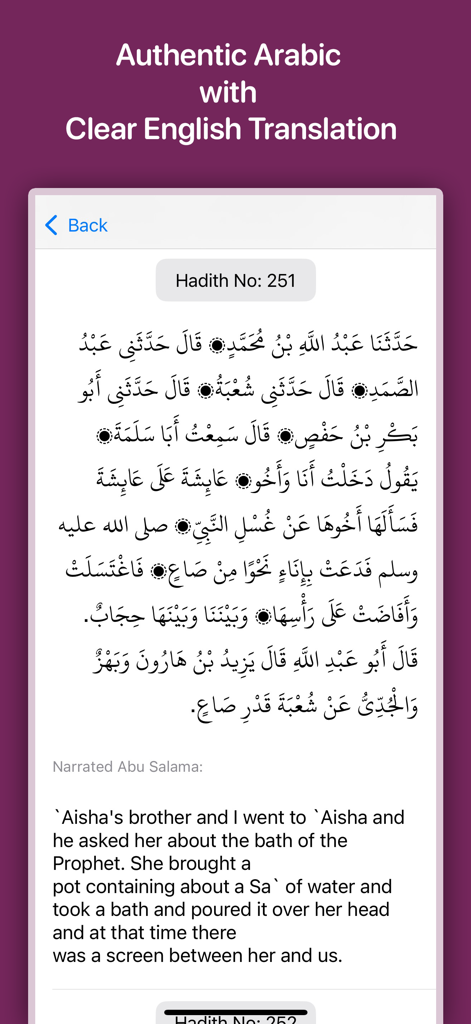 Authentic Arabic
with
Clear English Translation
Back
Hadith No: 251
حَدَّثَنَا عَبْدُ اللَّهِ بْنُ مُحَمَّدٍ، قَالَ حَدَّثَنِي عَبْدُ
الصَّمَدِ، قَالَ حَدَّثَنِي شُعْبَةُ، قَالَ حَدَّثَنِي أَبُو
بَكْرِ بْنُ حَفْصٍ، قَالَ سَمِعْتُ أَبَا سَلَمَةَ،
يَقُولُ دَخَلْتُ أَنَا وَأَخُو، عَايِشَةَ عَلَى عَايِشَةَ
فَسَأَلَهَا أَخُوهَا عَنْ غُسْلِ النَّبِيِّ، صلى الله عليه
وسلم فَدَعَتْ بِإِنَاءٍ نَحْوًا مِنْ صَاعٍ، فَاغْتَسَلَتْ
وَأَفَاضَتْ عَلَى رَأْسِهَا، وَبَيْنَنَا وَبَيْنَهَا حِجَابٌ.
قَالَ أَبُو عَبْدِ اللَّهِ قَالَ يَزِيدُ بْنُ هَارُونَ وَبَهْزٌ
وَالْجُدِّيُّ عَنْ شُعْبَةَ قَدْرِ صَاعٍ.
Narrated Abu Salama:
`Aisha's brother and I went to `Aisha and
he asked her about the bath of the
Prophet. She brought a
pot containing about a Sa` of water and
took a bath and poured it over her head
and at that time there
was a screen between her and us.
Hadith No: 252